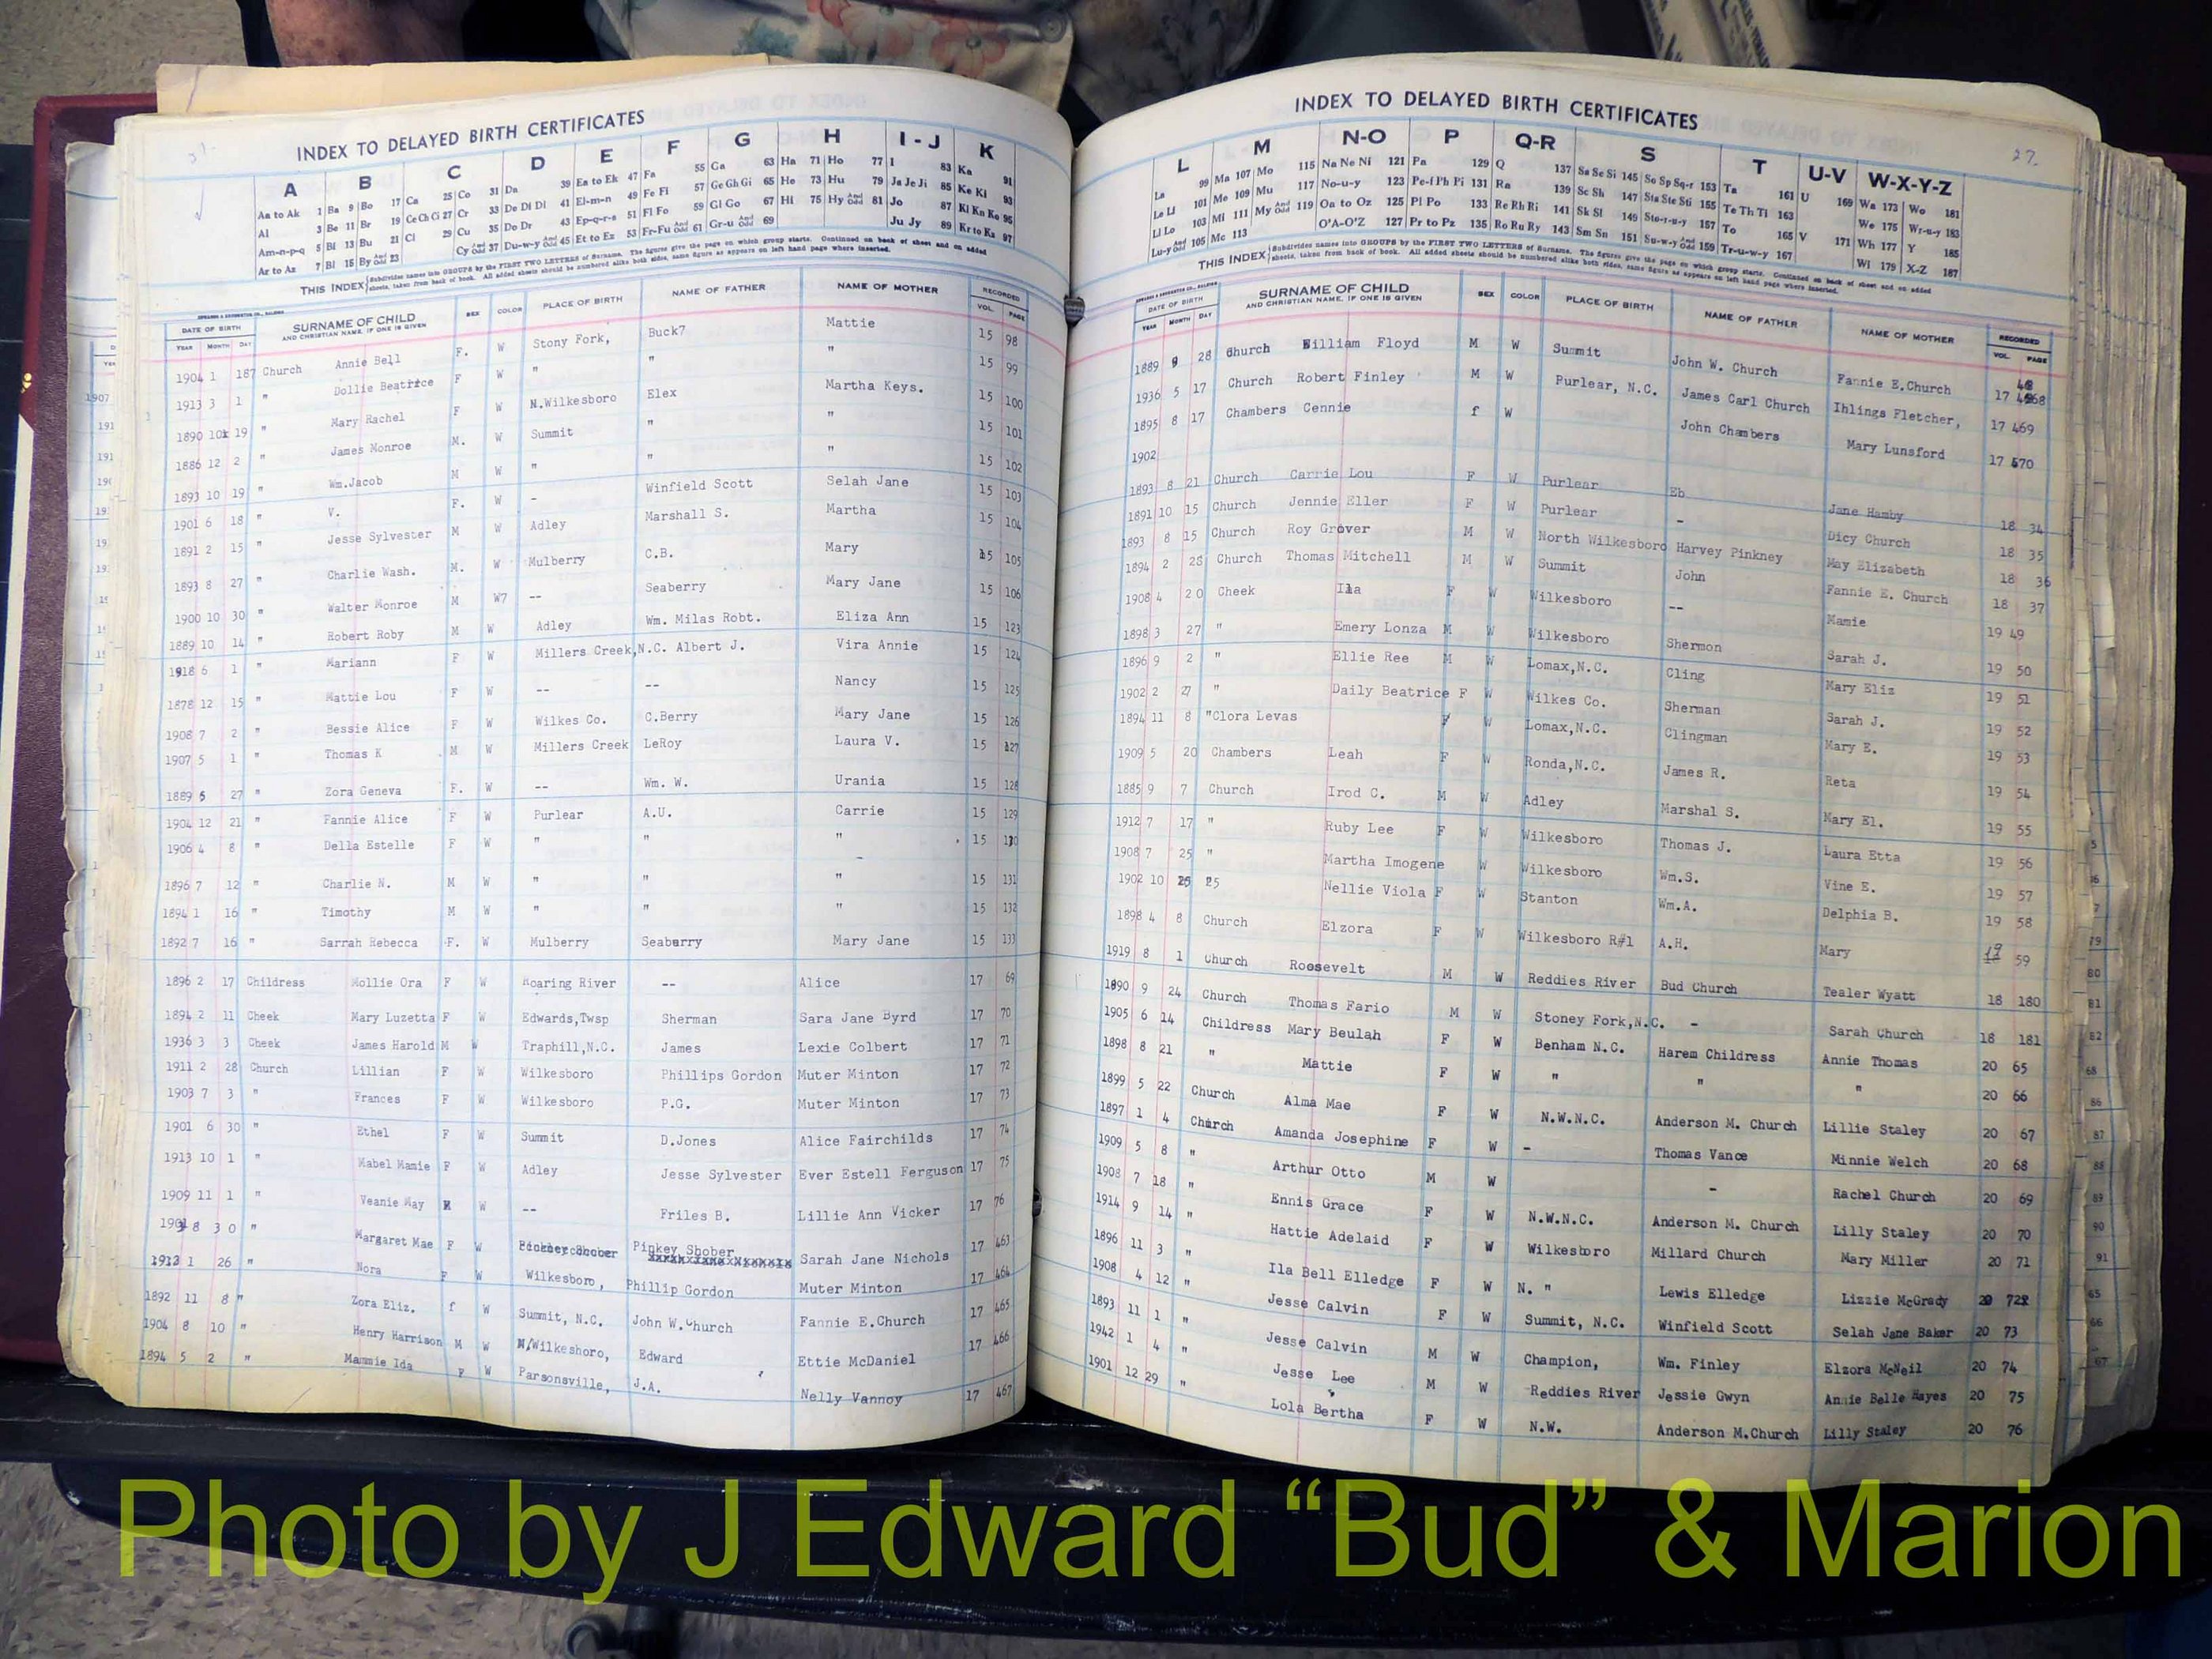 INDEX TO DELAYED BIRTH CERTIFICATES
A B C D E F G H I - J K
Aa to Ak 1 Ba 9 Bo 17 Ca 25 Co 31 Da 39 Ea to Ek 47 Fa 55 Ga 63 Ha 71 Ho 77 I 83 Ka 91
Al 3 Be 11 Br 19 Ce Ch Ci 27 Cr 33 De Di Dl 41 El-m-n 49 Fe Fi 57 Ge Gh Gi 65 He 73 Hu 79 Ja Je Ji 85 Ke Ki 93
Am-n-p-q 5 Bi 13 Bu 21 Cl 29 Cu 35 Do Dr 43 Ep-q-r-s 51 Fl Fo 59 Gl Go 67 Hi 75 Hy And Odd 81 Jo 87 Kl Kn Ko 95
Ar to Az 7 Bl 15 By And Odd 23 Cy And Odd 37 Du-w-y And Odd 45 Et to Ez 53 Fr-Fu And Odd 61 Gr-u And Odd 69 Ju Jy 89 Kr to Kz 97
THIS INDEX Subdivides names into GROUPS by the FIRST TWO LETTERS of Surname. The figures give the page on which group starts. Continued on back of sheet and on added
sheets, taken from back of book. All added sheets should be numbered alike both sides, same figure as appears on left hand page where inserted.
DATE OF BIRTH SURNAME OF CHILD SEX COLOR PLACE OF BIRTH NAME OF FATHER NAME OF MOTHER RECORDED
YEAR MONTH DAY AND CHRISTIAN NAME, IF ONE IS GIVEN VOL. PAGE
1904 1 187 Church Annie Bell F. W Stony Fork, Buck? Mattie 15 98
1913 3 1 " Dollie Beatrice F W " " " 15 99
1890 10 19 " Mary Rachel F W N.Wilkesboro Elex Martha Keys. 15 100
1886 12 2 " James Monroe M. W Summit " " 15 101
1893 10 19 " Wm.Jacob M W " " " 15 102
1901 6 18 " V. F. W - Winfield Scott Selah Jane 15 103
1891 2 15 " Jesse Sylvester M W Adley Marshall S. Martha 15 104
1893 8 27 " Charlie Wash. M. W Mulberry C.B. Mary 15 105
1900 10 30 " Walter Monroe M W? -- Seaberry Mary Jane 15 106
1889 10 14 " Robert Roby M W Adley Wm. Milas Robt. Eliza Ann 15 123
1918 6 1 " Mariann F W Millers Creek,N.C. Albert J. Vira Annie 15 124
1878 12 15 " Mattie Lou F W -- -- Nancy 15 125
1908 7 2 " Bessie Alice F W Wilkes Co. C.Berry Mary Jane 15 126
1907 5 1 " Thomas K M W Millers Creek LeRoy Laura V. 15 127
1889 5 27 " Zora Geneva F. W -- Wm. W. Urania 15 128
1904 12 21 " Fannie Alice F W Purlear A.U. Carrie 15 129
1906 4 8 " Della Estelle F W " " " 15 130
1896 7 12 " Charlie N. M W " " " 15 131
1894 1 16 " Timothy M W " " " 15 132
1892 7 16 " Sarrah Rebecca F. W Mulberry Seaberry Mary Jane 15 133
1896 2 17 Childress Mollie Ora F W Roaring River -- Alice 17 69
1894 2 11 Cheek Mary Luzetta F W Edwards,Twsp Sherman Sara Jane Byrd 17 70
1936 3 3 Cheek James Harold M W Traphill,N.C. James Lexie Colbert 17 71
1911 2 28 Church Lillian F W Wilkesboro Phillips Gordon Muter Minton 17 72
1903 7 3 " Frances F W Wilkesboro P.G. Muter Minton 17 73
1901 6 30 " Ethel F W Summit D.Jones Alice Fairchilds 17 74
1913 10 1 " Mabel Mamie F W Adley Jesse Sylvester Ever Estell Ferguson 17 75
1909 11 1 " Veanie May W -- Friles B. Lillie Ann Vicker 17 76
8 30 " Margaret Mae F W Pinkey Shober Sarah Jane Nichols 17 463
1 26 " Nora F W Wilkesboro, Phillip Gordon Muter Minton 17 464
1892 11 8 " Zora Eliz. f W Summit, N.C. John W.Church Fannie E.Church 17 465
1904 8 10 " Henry Harrison M W N/Wilkesboro, Edward Ettie McDaniel 17 466
1894 5 2 " Mammie Ida F W Parsonsville, J.A. Nelly Vannoy 17 467
INDEX TO DELAYED BIRTH CERTIFICATES
27
L M N-O P Q-R S T U-V W-X-Y-Z
La 99 Ma 107 Mo 115 Na Ne Ni 121 Pa 129 Q 137 Sa Se Si 145 So Sp Sq-r 153 Ta 161 U 169 Wa 173 Wo 181
Le Li 101 Me 109 Mu 117 No-u-y 123 Pe-f Ph Pi 131 Ra 139 Sc Sh 147 Sta Ste Sti 155 Te Th Ti 163 We 175 Wr-u-y 183
Ll Lo 103 Mi 111 My And Odd 119 Oa to Oz 125 Pl Po 133 Re Rh Ri 141 Sk Sl 149 Sto-r-u-y 157 To 165 V 171 Wh 177 Y 185
Lu-y And Odd 105 Mc 113 O'A-O'Z 127 Pr to Pz 135 Ro Ru Ry 143 Sm Sn 151 Su-w-y And Odd 159 Tr-u-w-y 167 Wi 179 X-Z 187
THIS INDEX Subdivides names into GROUPS by the FIRST TWO LETTERS of Surname. The figures give the page on which group starts. Continued on back of sheet and on added
sheets, taken from back of book. All added sheets should be numbered alike both sides, same figure as appears on left hand page where inserted.
DATE OF BIRTH SURNAME OF CHILD SEX COLOR PLACE OF BIRTH NAME OF FATHER NAME OF MOTHER RECORDED
YEAR MONTH DAY AND CHRISTIAN NAME, IF ONE IS GIVEN VOL. PAGE
1889 9 28 Church William Floyd M W Summit John W. Church Fannie E.Church
1936 5 17 Church Robert Finley M W Purlear, N.C. James Carl Church Ihlings Fletcher, 17 468
1895 8 17 Chambers Cennie f W John Chambers Mary Lunsford 17 469
1902 17 570
1893 8 21 Church Carrie Lou F W Purlear Eb Jane Hamby 18 34
1891 10 15 Church Jennie Eller F W Purlear - Dicy Church 18 35
1893 8 15 Church Roy Grover M W North Wilkesboro Harvey Pinkney May Elizabeth 18 36
1894 2 28 Church Thomas Mitchell M W Summit John Fannie E. Church 18 37
1908 4 20 Cheek Ila F W Wilkesboro -- Mamie 19 49
1898 3 27 " Emery Lonza M W Wilkesboro Shermon Sarah J. 19 50
1896 9 2 " Ellie Ree M W Lomax,N.C. Cling Mary Eliz 19 51
1902 2 27 " Daily Beatrice F W Wilkes Co. Sherman Sarah J. 19 52
1894 11 8 "Clora Levas F W Lomax,N.C. Clingman Mary E. 19 53
1909 5 20 Chambers Leah F W Ronda,N.C. James R. Reta 19 54
1885 9 7 Church Irod C. M W Adley Marshal S. Mary El. 19 55
1912 7 17 " Ruby Lee F W Wilkesboro Thomas J. Laura Etta 19 56
1908 7 25 " Martha Imogene W Wilkesboro Wm.S. Vine E. 19 57
1902 10 25 Nellie Viola F W Stanton Wm.A. Delphia B. 19 58
1898 4 8 Church Elzora F W Wilkesboro R#1 A.H. Mary 19 59
1919 8 1 Church Roosevelt M W Reddies River Bud Church Tealer Wyatt 18 180
1890 9 24 Church Thomas Fario M W Stoney Fork,N.C. - Sarah Church 18 181
1905 6 14 Childress Mary Beulah F W Benham N.C. Harem Childress Annie Thomas 20 65
1898 8 21 " Mattie F W " " " 20 66
1899 5 22 Church Alma Mae F W N.W.N.C. Anderson M. Church Lillie Staley 20 67
1897 1 4 Church Amanda Josephine F W - Thomas Vance Minnie Welch 20 68
1909 5 8 " Arthur Otto M W - Rachel Church 20 69
1908 7 18 " Ennis Grace F W N.W.N.C. Anderson M. Church Lilly Staley 20 70
1914 9 14 " Hattie Adelaid F W Wilkesboro Millard Church Mary Miller 20 71
1896 11 3 " Ila Bell Elledge F W N. " Lewis Elledge Lizzie McGrady 20 72
1908 4 12 " Jesse Calvin F W Summit, N.C. Winfield Scott Selah Jane Baker 20 73
1893 11 1 " Jesse Calvin M W Champion, Wm. Finley Elzora McNeil 20 74
1942 1 4 " Jesse Lee M W Reddies River Jessie Gwyn Annie Belle Hayes 20 75
1901 12 29 " Lola Bertha F W N.W. Anderson M.Church Lilly Staley 20 76
Photo by J Edward “Bud” & Marion